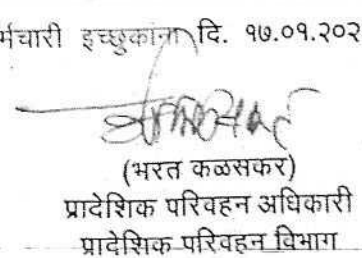 र्मचारी इच्छुकांना दि. १७.०१.२०२
(भरत कळसकर)
प्रादेशिक परिवहन अधिकारी
प्रादेशिक परिवहन विभाग